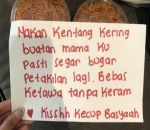 Makan Kentang Kering
buatan mama Ku
Pasti segar bugar
Petakilan lagi. Bebas
Ketawa tanpa Keram
♥ Kisshh Kecup Basyaah